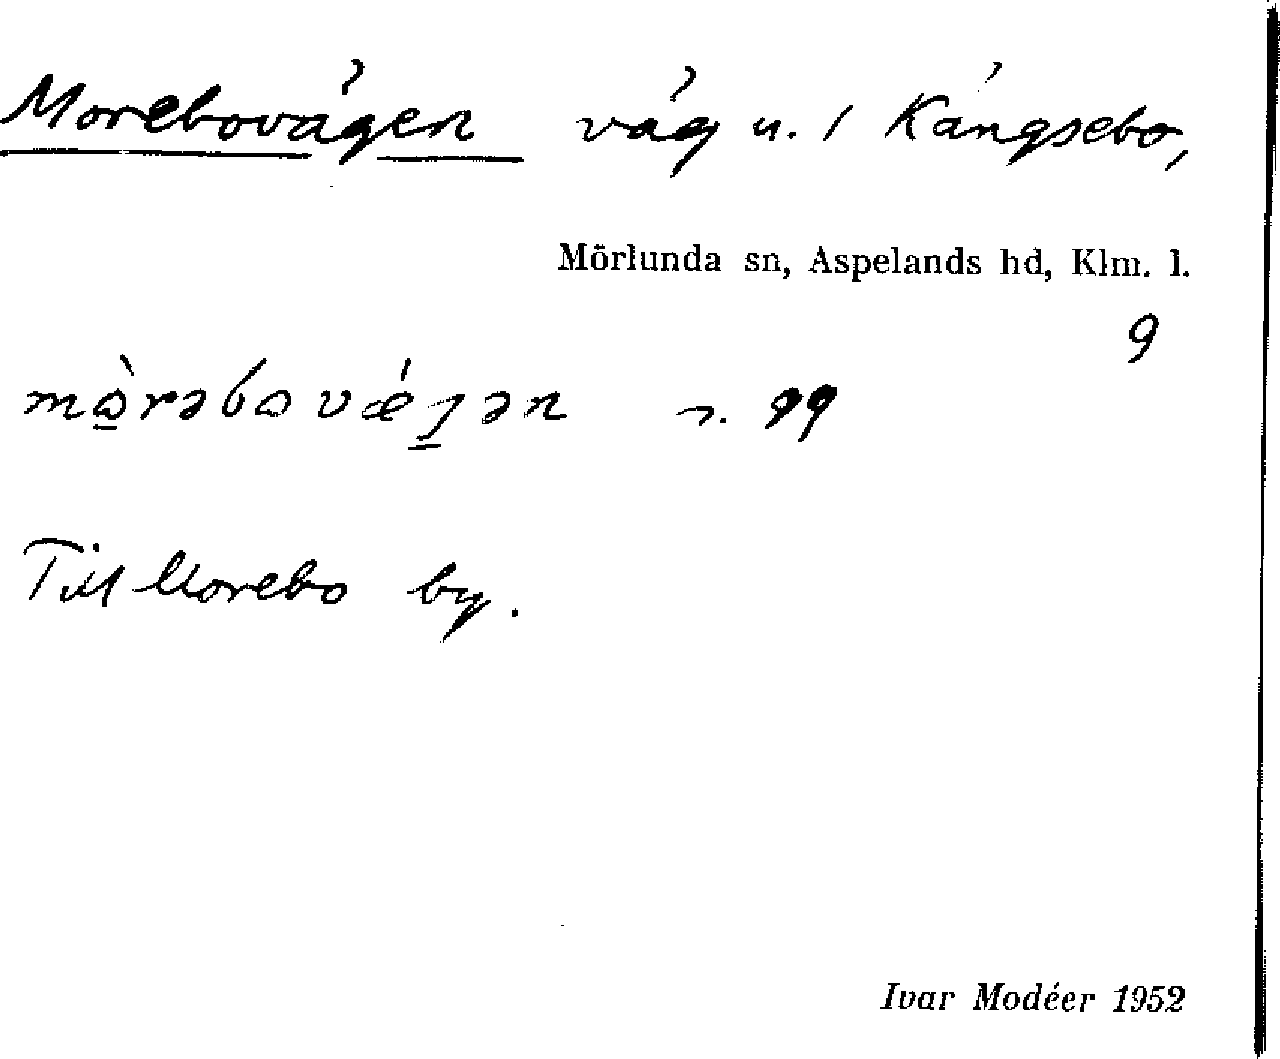 Morebovägen väg u. / Kängsebo,
Mörlunda sn, Aspelands hd, Klm. l.
9
Till Morebo by.
Ivar Modéer 1952